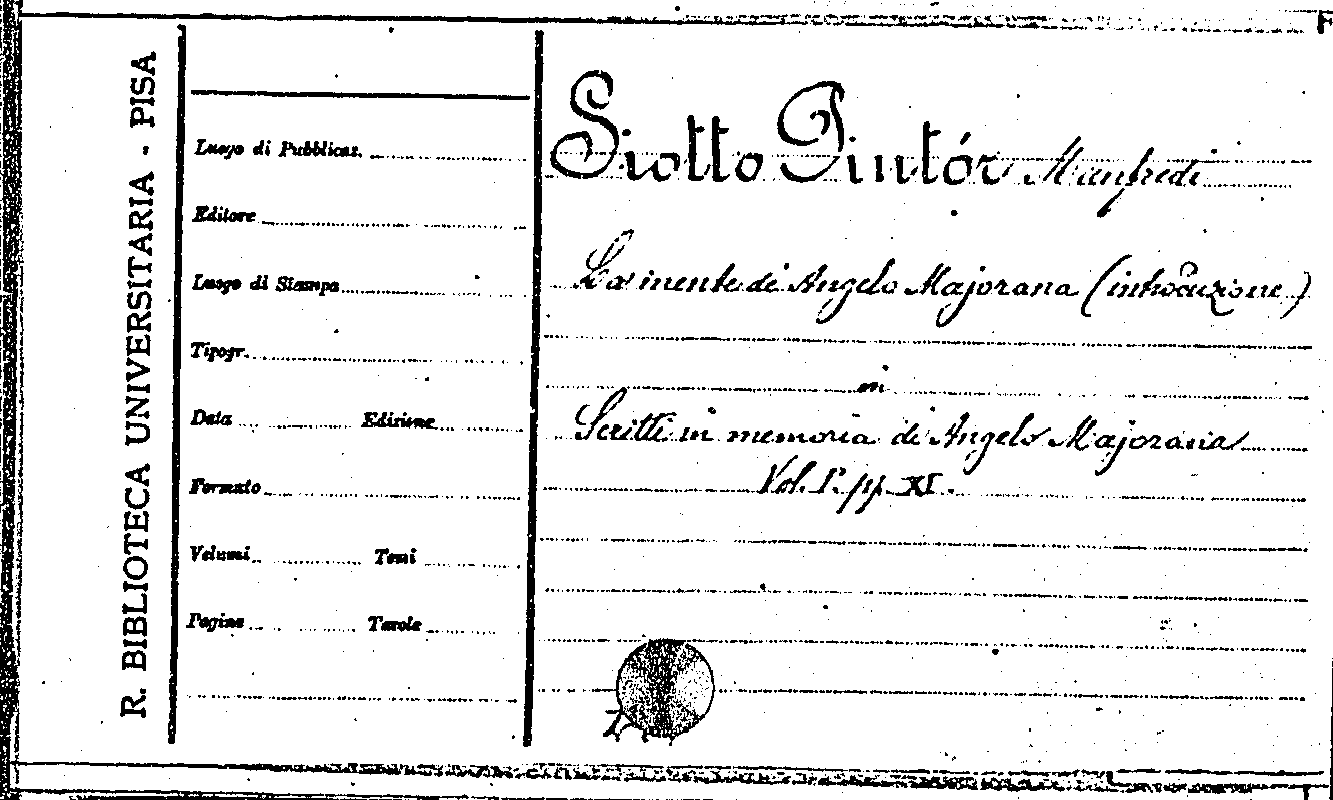 R. BIBLIOTECA UNIVERSITARIA - PISA
Luogo di Pubblicaz.
Editore
Luogo di Stampa
Tipogr.
Data Edizione
Formato
Volumi Tomi
Pagine Tavole
Siotto Pintór Manfredi
La mente di Angelo Majorana (introduzione)
in
Scritti in memoria di Angelo Majorana
Vol. I. pp. XI.